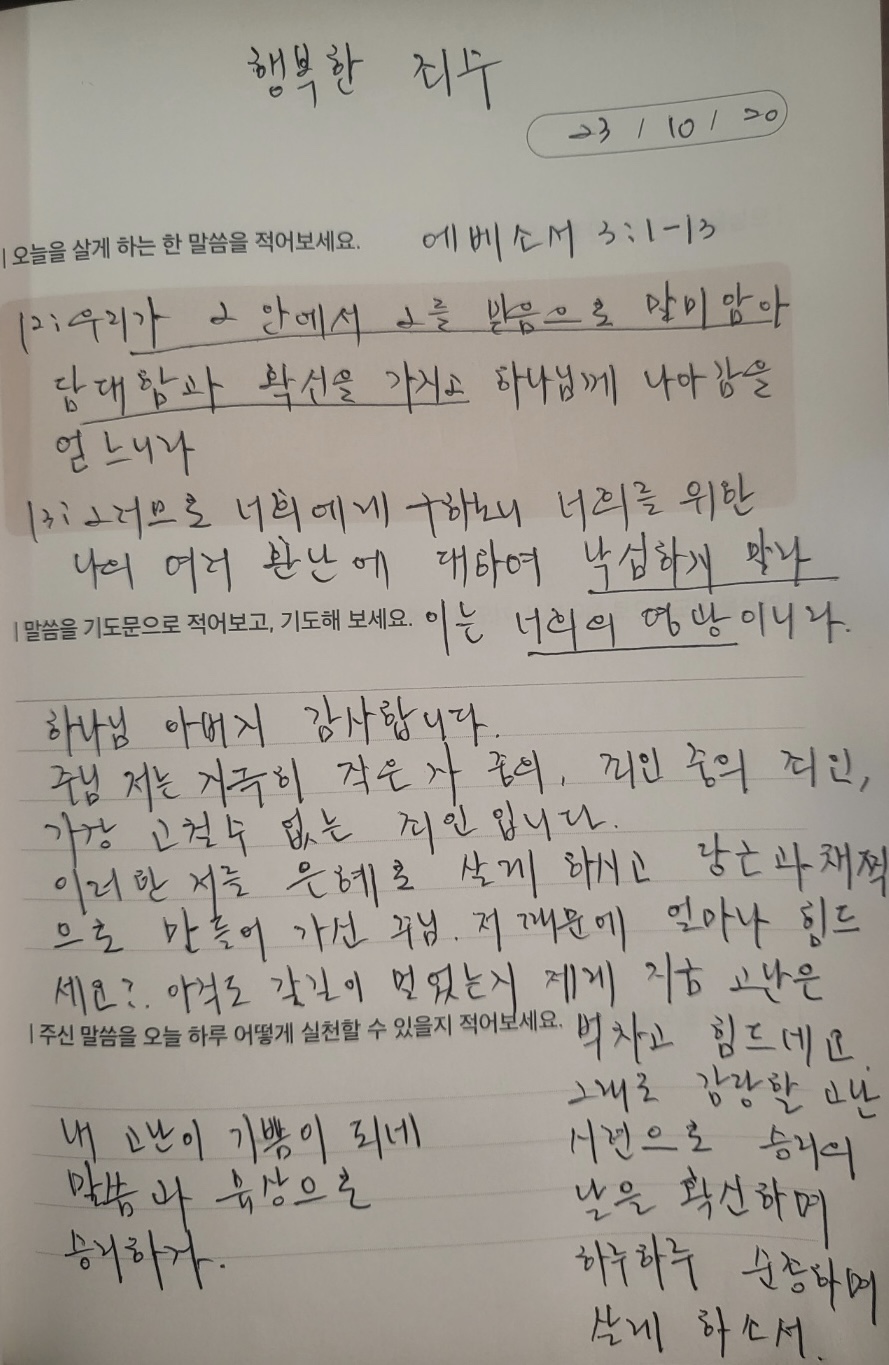 행복한 죄수
23 / 10 / 20
| 오늘을 살게 하는 한 말씀을 적어보세요.
에베소서 3:1-13
12: 우리가 그 안에서 그를 믿음으로 말미암아
담대함과 확신을 가지고 하나님께 나아감을
얻느니라
13: 그러므로 너희에게 구하노니 너희를 위한
나의 여러 환난에 대하여 낙심하지 말라
이는 너희의 영광이니라.
| 말씀을 기도문으로 적어보고, 기도해 보세요.
하나님 아버지 감사합니다.
주님 저는 지극히 작은 자 중의, 죄인 중의 죄인,
가장 고칠수 없는 죄인입니다.
이러한 저를 은혜로 살게 하시고 당근과 채찍
으로 만들어 가신 주님. 저 때문에 얼마나 힘드
세요?. 아직도 갈길이 멀었는지 제게 지금 고난은
벅차고 힘드네요.
그래도 감당할 고난
시련으로 승리의
날을 확신하며
하루하루 순종하며
살게 하소서.
| 주신 말씀을 오늘 하루 어떻게 실천할 수 있을지 적어보세요.
내 고난이 기쁨이 되네
말씀과 묵상으로
승리하자.